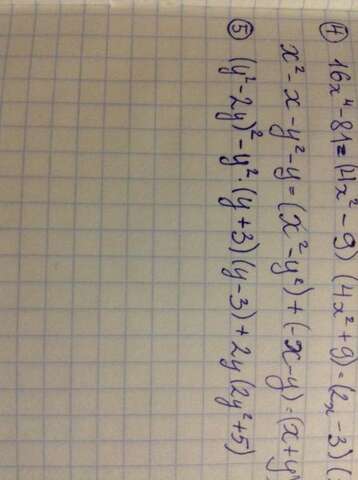 ④ 16x⁴-81=(4x²-9)(4x²+9)=(2x-3)(
x²-x-y²-y=(x²-y²)+(-x-y)=(x+y)
⑤ (y²-2y)²-y²·(y+3)(y-3)+2y(2y²+5)